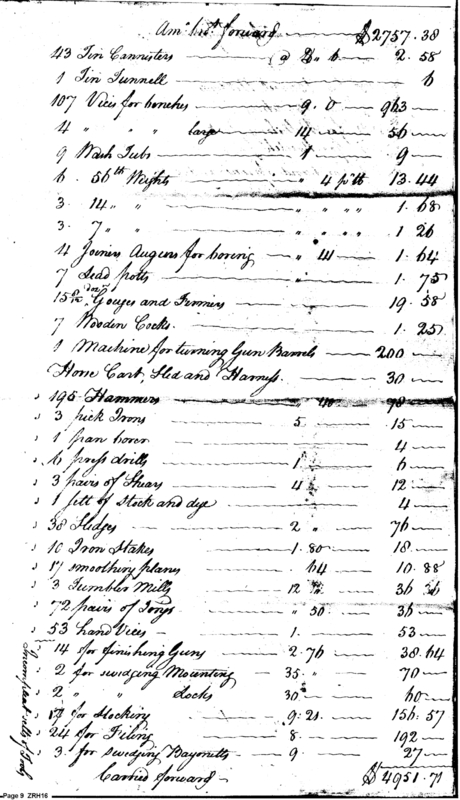 Amt brot forward $2757.38
43 Tin Cannisters @ " 6 2.58
1 Tin Tunnell 6
107 Vices for benches 9.0 963
4 " " " large 14 56
9 Wash Tubs 1 9
6 . 56 lb Weights " 4 pr lb 13.44
3 14 " " " " " " 1.68
3 . 7 " " " " " 1 26
4 Joiners Augers for boring " 41 1.64
7 Lead potts 1.75
15 Gouges and Firmers 19.58
7 Wooden Cocks 1.25
1 Machine for turning Gun Barrels 200
Horse Cart, Sled and Harness 30
195 Hammers " 40 78
3 pick Irons 5 15
1 pan borer 4
6 press drills 1 6
3 pairs of Shears 4 12
1 sett of Stock and dye 4
38 Sledges 2 " 76
10 Iron Stakes 1.80 18
17 smoothing planes . 64 10.88
3 Tumbler Mills 12 36
72 pairs of Tongs " 50 36
53 hand Vices 1. 53
14 for finishing Guns 2.76 38.64
2 for swedging Mounting 35 " 70
2 " " Locks 30 60
17 for Stocking 9.21 156.57
24 for Fileing 8 192
3 for swedging Bayonetts 9 27
Carried forward $4951.71
setts of Tools
Page 9 ZRH16